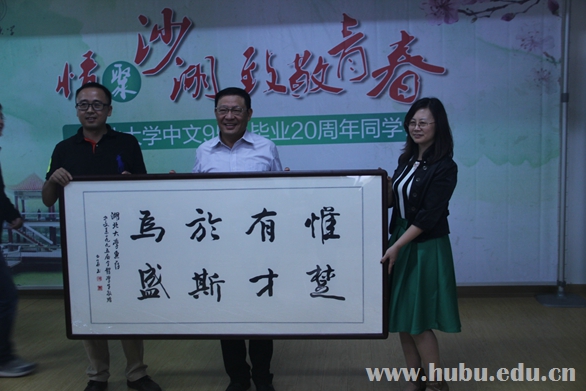 情聚沙湖 致敬青春
大学中文9 毕业20周年同学
惟楚有才
於斯為盛
湖北大学惠存
www.hubu.edu.cn